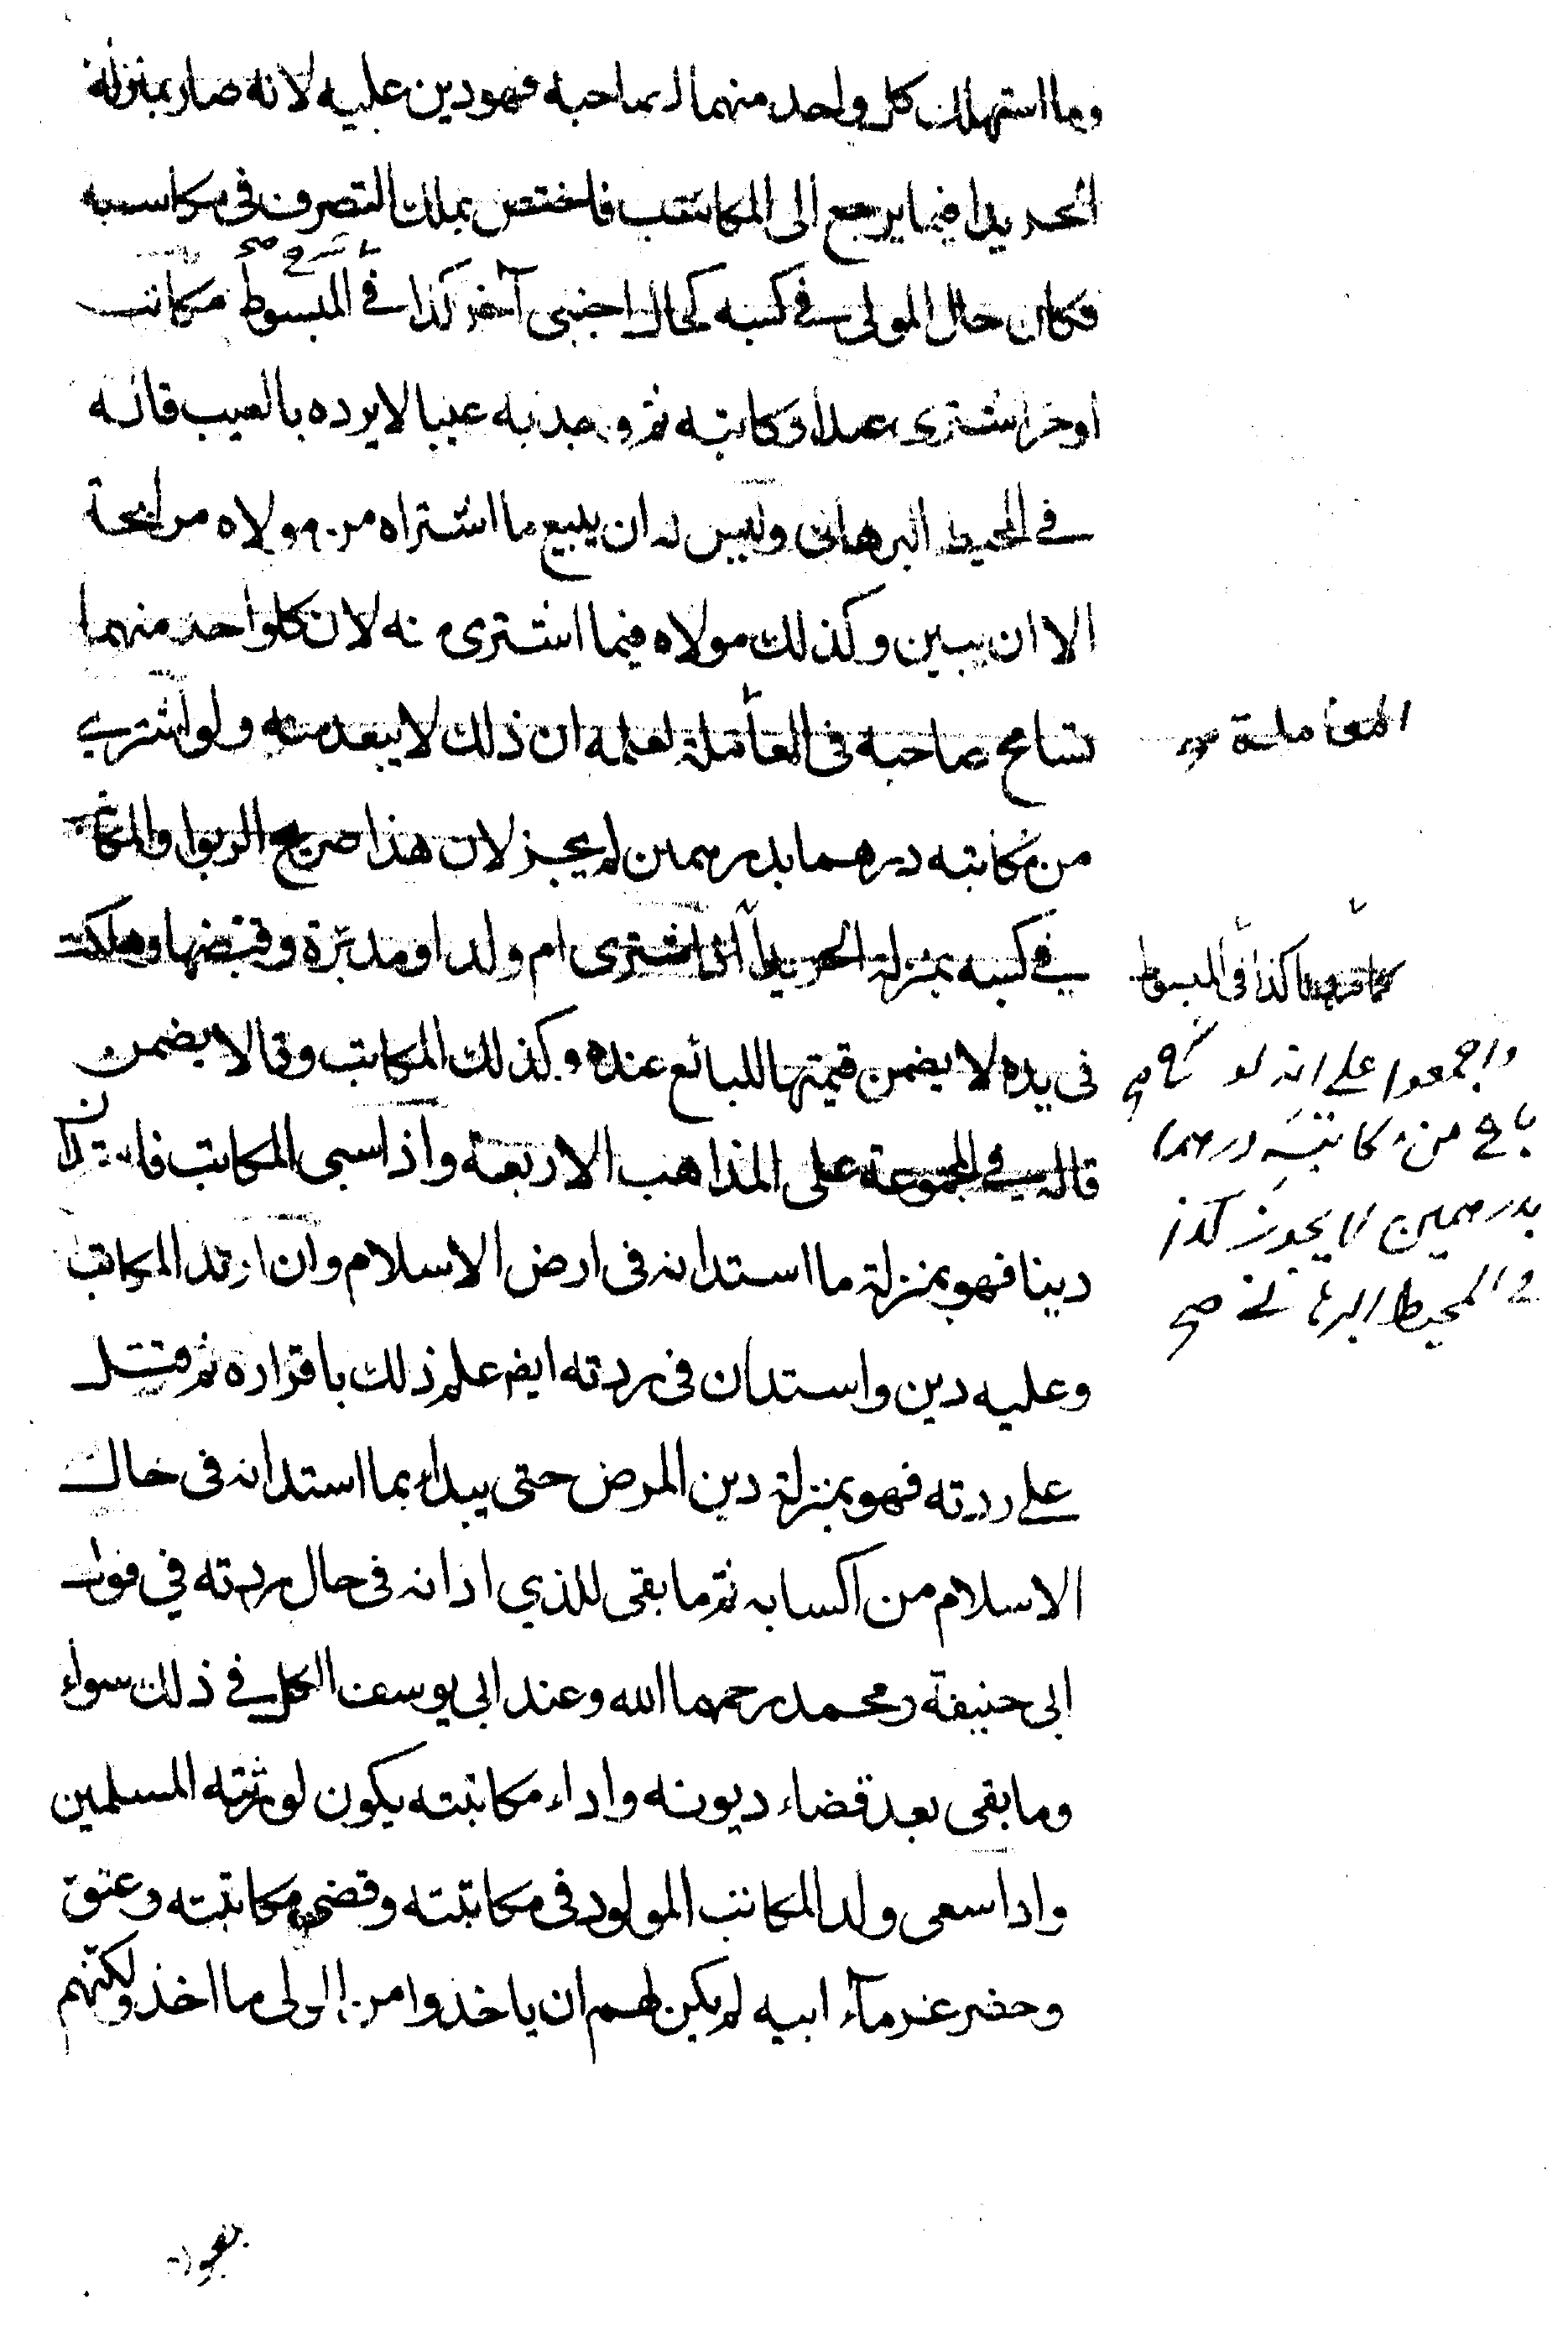 وما استهلك كل واحد منهما لصاحبه فهو دين عليه لانه صار بمنزلة
الحر يدا فيما يرجع الى المكاسب فاختص بملك التصرف فى مكاسبه
فكان حال المولى في كسبه كحال اجنبى آخر كذا في المبسوط مكاتب
او حر اشترى عبدا فكاتبه ثم وجد به عيبا لا يرده بالعيب قاله
في المحيط البرهانى وليس له ان يبيع ما اشتراه من مولاه مرابحة
الا ان يبين وكذلك مولاه فيما اشترى منه لان كلواحد منهما
تسامح صاحبه فى المعاملة لعلمه ان ذلك لا يبعد منه ولو اشترى
من مكاتبه درهما بدرهمين لم يجز لان هذا صريح الربوا والمكاتب
في كسبه بمنزلة الحر يدا اذا اشترى ام ولد او مدبرة وقبضها وهلكت
فى يده لا يضمن قيمتها للبائع عنده وكذلك المكاتب وقالا يضمن
قاله في المجموعة على المذاهب الاربعة واذا سبى المكاتب فاستدان
دينا فهو بمنزلة ما استدانه فى ارض الاسلام وان ارتد المكاتب
وعليه دين واستدان فى ردته ايض علم ذلك باقراره ثم قتل
على ردته فهو بمنزلة دين المرض حتى يبداء بما استدانه فى حال
الاسلام من اكسابه ثم ما بقى للذي ادانه فى حال ردته في قول
ابى حنيفة ومحمد رحمهما الله وعند ابى يوسف الكل في ذلك سواء
وما بقى بعد قضاء ديونه واداء مكاتبته يكون لورثته المسلمين
واذا سعى ولد المكاتب المولود فى مكاتبته وقضى مكاتبته وعتق
وحضر غرمآء ابيه لم يكن لهم ان ياخذوا من المولى ما اخذ ولكنهم
المعاملة
كذا فى المبسوط
واجمعوا على انه لو
باع من مكاتبه درهما
بدرهمين لا يجوز كذا
في المحيط البرهاني صح